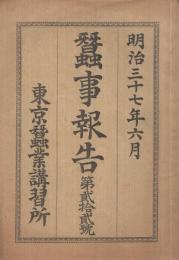 明治三十七年六月
蠶事報告
第貳拾貳號
東京蠶業講習所